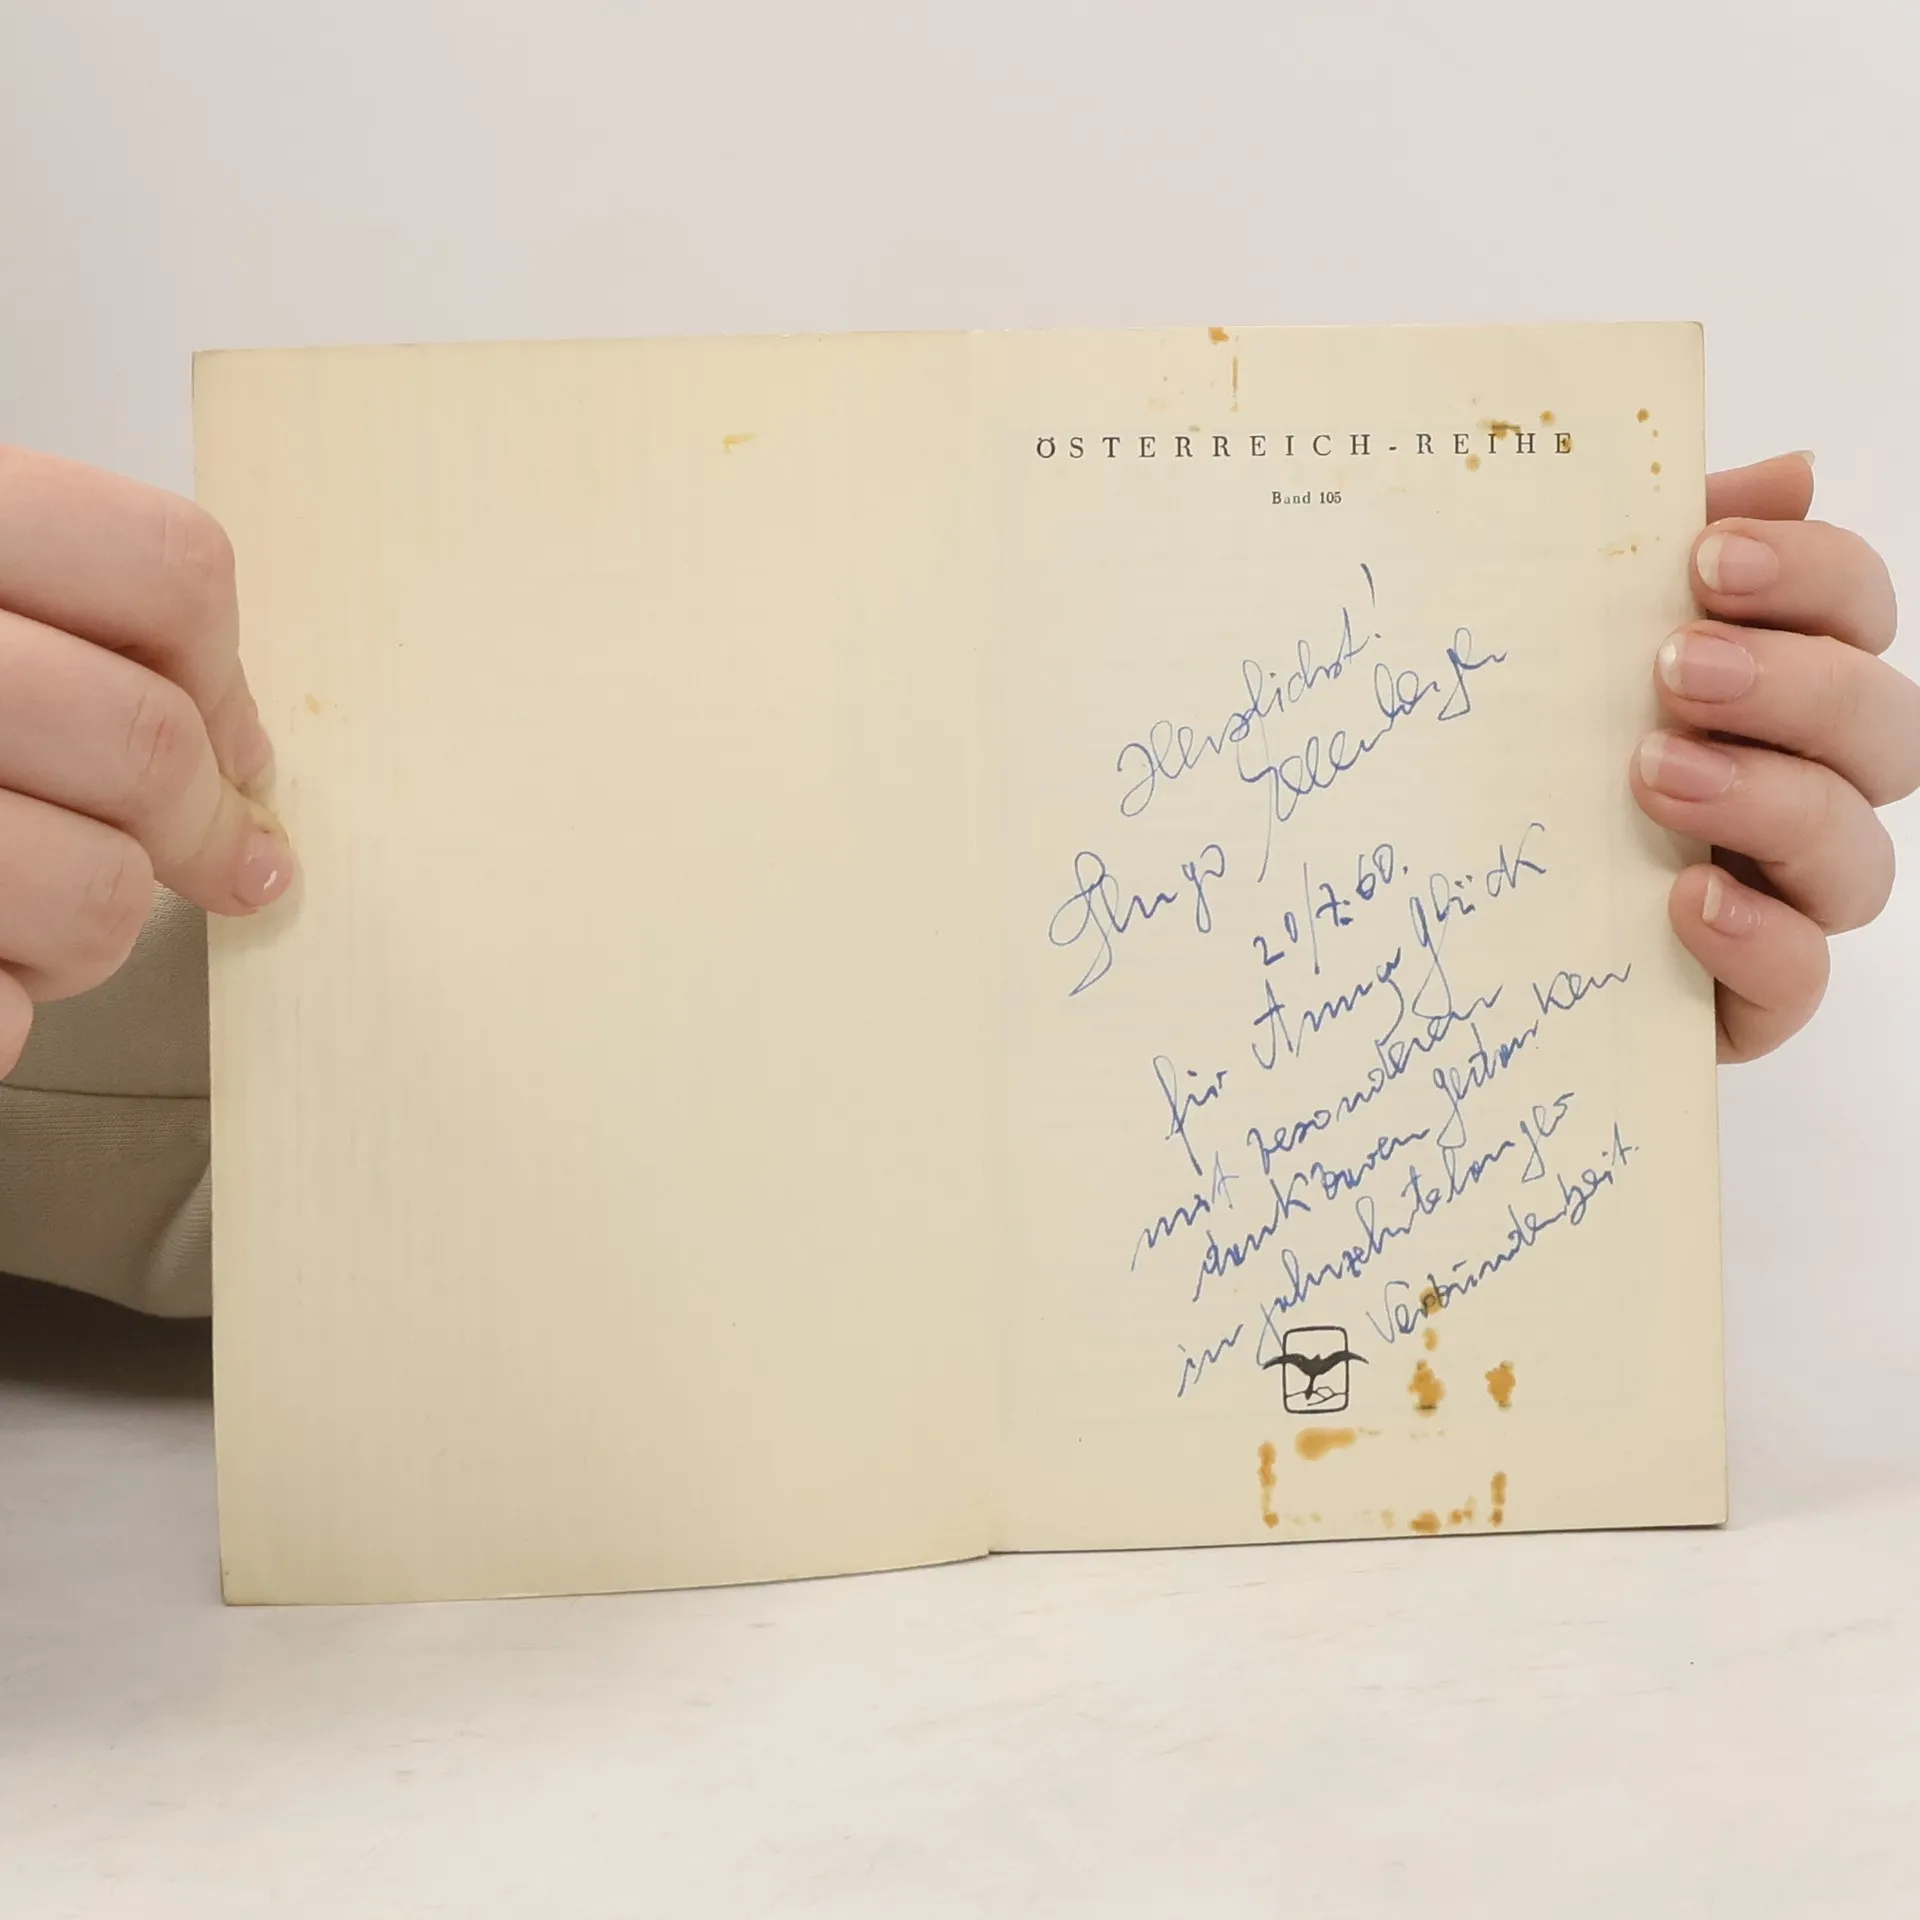 ÖSTERREICH-REIHE
Band 105
Herzlichst!
Hugo Ellenberger
20/7.60.
für Anna Glück
mit besonderen
dankbaren Gedanken
in jahrzehntelanger
Verbundenheit.